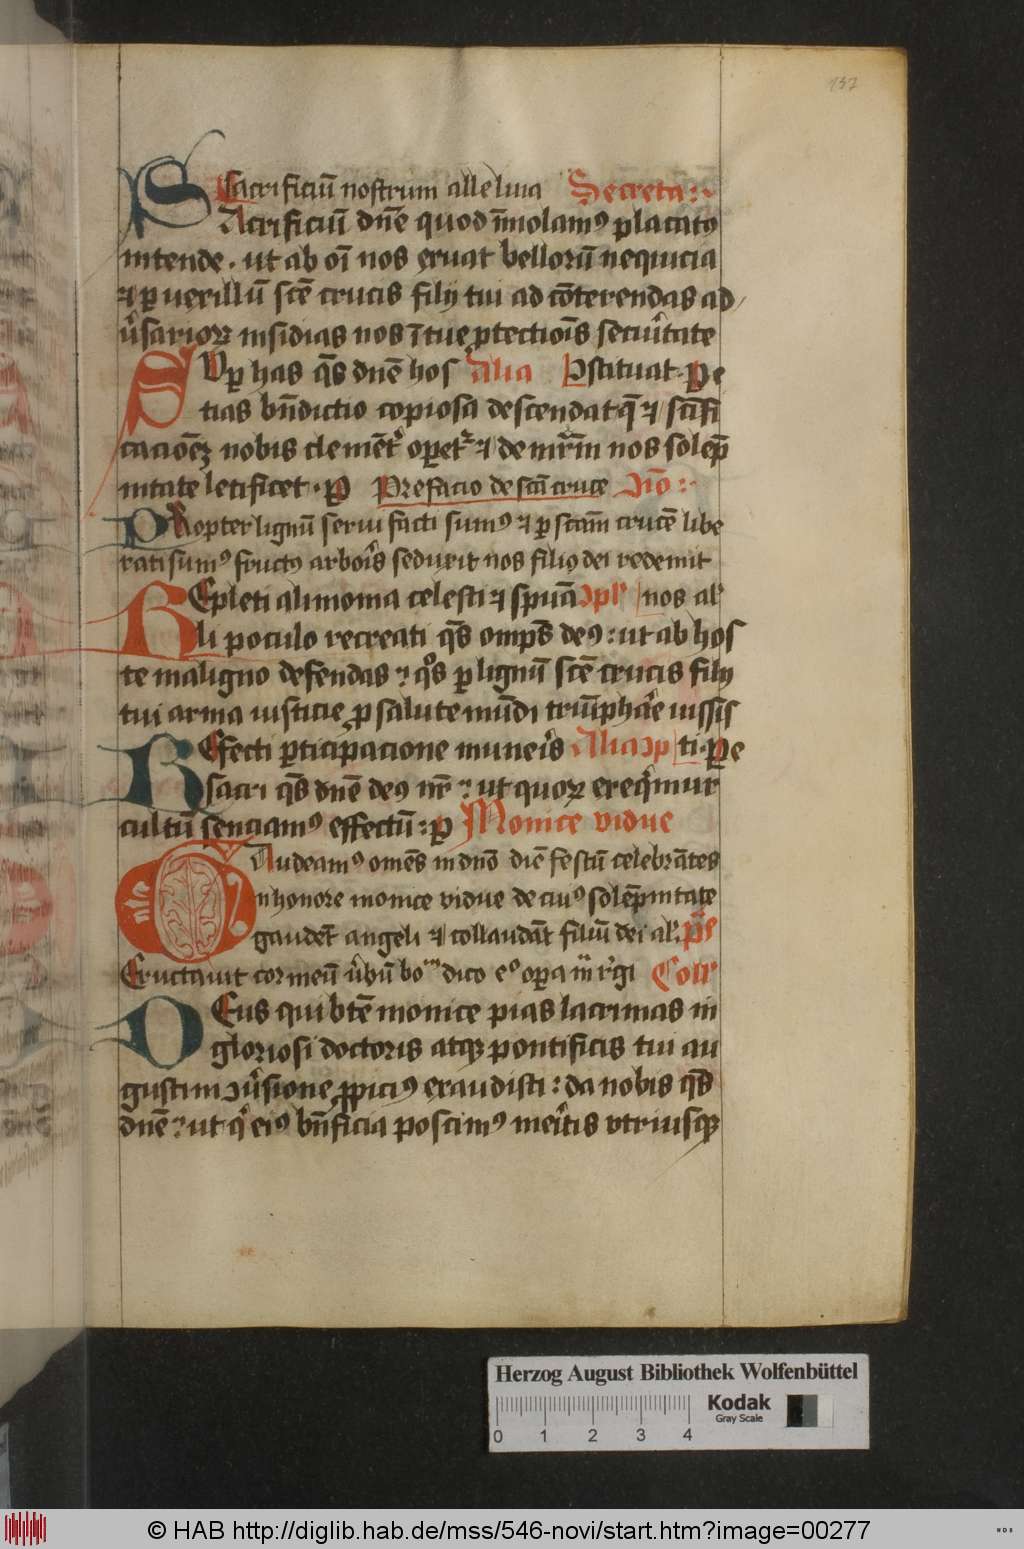 137
Sacrificiū nostrum alleluia Secreta
SAcrificiū dn̄e quod īmolamꝰ placatꝰ
intende . ut ab oī nos eruat bellorū nequicia
⁊ ꝑ uexillū scē crucis filij tui ad cōterendas ad
ũsarioꝝ insidias nos ī tue ꝓtectiōis secuͥtate
SVꝑ has q̄s dn̄e hos Alia Pstituat . Pe
tias bn̄dictio copiosa descendat q̄ ⁊ sc̄ifi
cacōeꝫ nobis clemēt oꝑet ⁊ de mr̄im nos solēp
nitate letificet . ꝑ Prefacio de sc̄a cruce
PRopter lignū serui facti sumꝰ ⁊ ꝑ sc̄am crucē libe
rati sumꝰ fructꝰ arboͥis seduxit nos filiꝰ dei redemit
REpleti alimonia celesti ⁊ sp̄uā ꝯpl nos al
li poculo recreati q̄s omp̄s deꝰ : ut ab hos
te maligno defendas : qͦs ꝑ lignū scē crucis filij
tui arma iusticie ꝓ salute mūdi triūphaͬe iussis
REfecti ꝑticipacione muneͥis Alia ꝯp ti . Pe
sacri q̄s dn̄e deꝰ nr̄ : ut quoꝝ exeqͥmur
cultū senciamꝰ effectū : ꝑ Monice vidue
GAudeamꝰ om̄es in dn̄o diē festū celebrātes
in honore monice vidue de cuiꝰ solēpnitate
gaudēt angeli ⁊ collaudāt filiū dei al . ps̄
Eructauit cor meū ũbū bo dico eͦ oꝑa m̄ rͤgi Coll
DEus qui btē monice pias lacrimas in
gloriosi doctoris atqꝫ pontificis tui au
gustini ꝯũsione ꝓpiciꝰ exaudisti : da nobis q̄s
dn̄e : ut qͥ eiꝰ bn̄ficia poscimꝰ meͥitis vtriusqꝫ
Herzog August Bibliothek Wolfenbüttel
Kodak
Gray Scale
0 1 2 3 4
© HAB http://diglib.hab.de/mss/546-novi/start.htm?image=00277